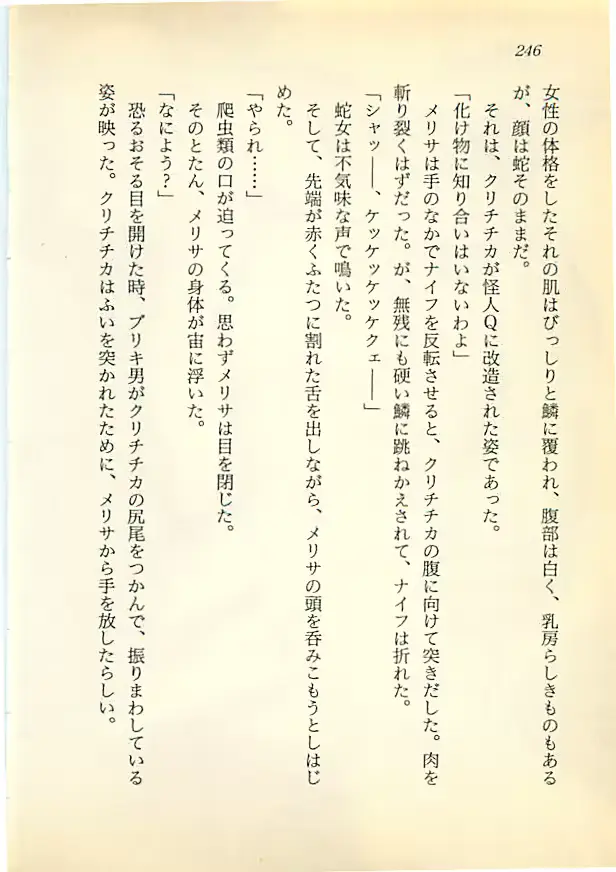 246
女性の体格をしたそれの肌はびっしりと鱗に覆われ、腹部は白く、乳房らしきものもある
が、顔は蛇そのままだ。
それは、クリチチカが怪人Qに改造された姿であった。
「化け物に知り合いはいないわよ」
メリサは手のなかでナイフを反転させると、クリチチカの腹に向けて突きだした。肉を
斬り裂くはずだった。が、無残にも硬い鱗に跳ねかえされて、ナイフは折れた。
「シャッ――、ケッケッケッケクェ――」
蛇女は不気味な声で鳴いた。
そして、先端が赤くふたつに割れた舌を出しながら、メリサの頭を呑みこもうとしはじ
めた。
「やられ……」
爬虫類の口が迫ってくる。思わずメリサは目を閉じた。
そのとたん、メリサの身体が宙に浮いた。
「なによう?」
恐るおそる目を開けた時、ブリキ男がクリチチカの尻尾をつかんで、振りまわしている
姿が映った。クリチチカはふいを突かれたために、メリサから手を放したらしい。